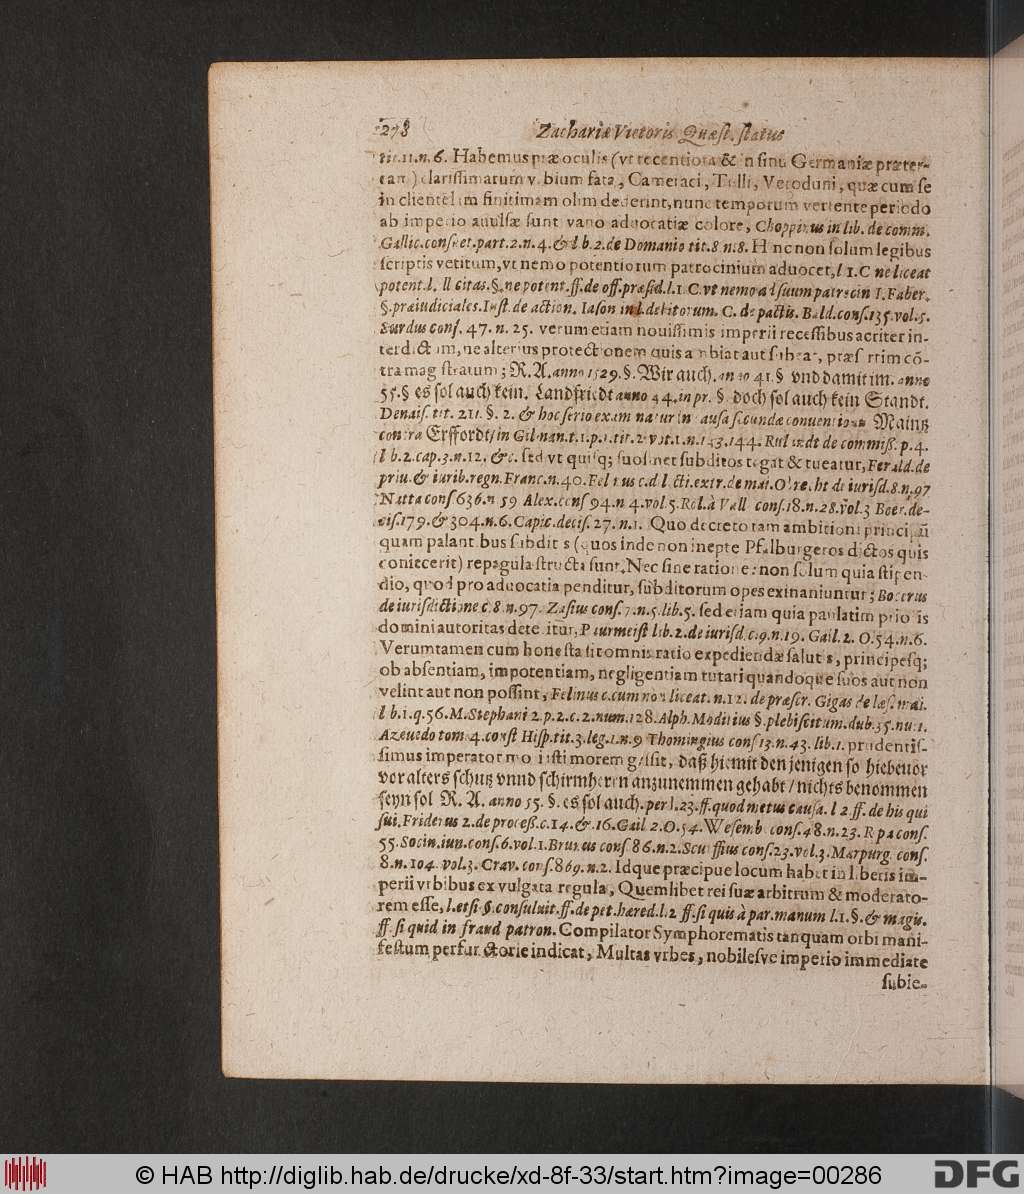 278 Zachariæ Vietoris Quæst. status
tit. 11. n. 6. Habemus præ oculis (vt recentiora & in sinu Germaniæ præter-
eam) clarissimarum vrbium fata, Cameraci, Tulli, Veroduni, quæ cum se
in clientelam finitimam olim dederint, nunc temporum vertente periodo
ab imperio auulsæ sunt vano aduocatiæ colore, Choppinus in lib. de comm.
Gallic. consuet. part. 2. n. 4. & lib. 2. de Domanio tit. 8. n. 8. Hinc non solum legibus
scriptis vetitum, vt nemo potentiorum patrocinium aduocet, l 1. C ne liceat
potent. l. ll citas. §. ne potent. ff. de off. præsid. l. 1. C. vt nemo ad suum patrocin I. Faber.
§. præiudiciales. Inst. de action. Iason in l. debitorum. C. de pactis. Bald. cons. 135. vol. 5.
Surdus cons. 47. n. 25. verum etiam nouissimis imperii recessibus acriter in-
terdictum, ne alterius protectionem quis ambiat aut subeat, præsertim cõ-
tra magistratum; R. A. anno 1529. §. Wir auch. anno 41. § vnd damit im. anno
55. § es sol auch kein. Landfriedt anno 44. in pr. §. doch sol auch kein Standt.
Denais. tit. 211. §. 2. & hoc serio examinatur in causa secundæ conuentionis Mainz
contra Erffordt/ in Gilman. t. 1. p. 1. tit. 2. vot. 1. n. 143. 144. Rulandt de commiß. p. 4.
l b. 2. cap. 3. n. 12. &c. sed vt quisq; suosmet subditos tegat & tueatur, Ferald. de
priu. & iurib. regn. Franc. n. 40. Felinus c. dilecti. extr. de mai. Obrecht de iurisd. 8. n. 97
Natta cons 636. n 59 Alex. cons 94. n 4. vol. 5. Rol. à Vall cons. 18. n. 28. vol. 3 Boer. de-
cis. 179. & 304. n. 6. Capic. decis. 27. n. 1. Quo decreto tam ambitioni principũ
quam palantibus subditis (quos inde non inepte Pfalburgeros dictos quis
coniecerit) repagula structa sunt. Nec sine ratione: non solum quia stipen-
dio, quod pro aduocatia penditur, subditorum opes exinaniuntur; Bocerus
de iurisdictione c. 8. n. 97. Zasius cons. 7. n. 5. lib. 5. sed etiam quia paulatim prioris
domini autoritas deteritur, Peurmeist lib. 2. de iurisd. c. 9. n. 19. Gail. 2. O. 54. n. 6.
Verumtamen cum honesta sit omnis ratio expediendæ salutis, principesq;
ob absentiam, impotentiam, negligentiam tutari quandoque suos aut non
velint aut non possint, Felinus c. cum non liceat. n. 12. de præscr. Gigas de læs. mai.
l b. 1. q. 56. M. Stephani 2. p. 2. c. 2. num. 128. Alph. Moditius §. plebiscitum. dub. 35. nu. 1.
Azeuedo tom. 4. const Hisp. tit. 3. leg. 1. n. 9 Thomingius cons 13. n. 43. lib. 1. prudentis-
simus imperator modisti morem gessit, daß hiemit den jenigen so hiebeuor
vor alters schutz vnnd schirmherrn anzunemmen gehabt/ nichts benommen
seyn sol R. A. anno 55. §. es sol auch. per l. 23. ff. quod metus causa. l 2 ff. de his qui
sui. Friderus 2. de proceß. c. 14. & 16. Gail 2. O. 54. Wesemb. cons. 48. n. 23. Ripa cons.
55. Socin. iun. cons. 6. vol. 1. Brunus cons. 86. n. 2. Scurffius cons. 23. vol. 3. Marpurg. cons.
8. n. 104. vol. 3. Crav. cons. 869. n. 2. Idque præcipue locum habet in liberis im-
perii vrbibus ex vulgata regula, Quemlibet rei suæ arbitrum & moderato-
rem esse, l. etsi §. consuluit. ff. de pet. hæred. l. 2 ff. si quis à par. manum l. 1. §. & magis.
ff. si quid in fraud patron. Compilator Symphorematis tanquam orbi mani-
festum perfunctorie indicat, Multas vrbes, nobilesve imperio immediate
subie-
© HAB http://diglib.hab.de/drucke/xd-8f-33/start.htm?image=00286
DFG